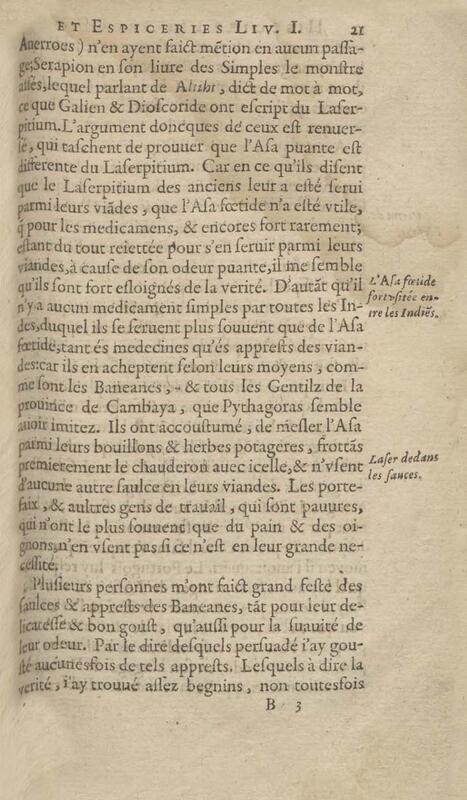 ET ESPICERIES LIV. I. 21
Auerroes) n'en ayent faict mẽtion en aucun passa-
ge; Serapion en son liure des Simples le monstre
assés, lequel parlant de Altiht, dict de mot à mot,
ce que Galien & Dioscoride ont escript du Laser-
pitium. L'argument doncques de ceux est renuer-
sé, qui taschent de prouuer que l'Asa puante est
differente du Laserpitium. Car en ce qu'ils disent
que le Laserpitium des anciens leur a esté serui
parmi leurs viãdes, que l'Asa fœtide n'a esté vtile,
q̃ pour les medicamens, & encores fort rarement;
estant du tout reiettée pour s'en seruir parmi leurs
viandes, à cause de son odeur puante, il me semble
qu'ils sont fort esloignés de la verité. D'autãt qu'il
n'y a aucun medicament simples par toutes les In-
des, duquel ils se seruent plus souuent que de l'Asa
fœtide, tant és medecines qu'és apprests des vian-
des: car ils en acheptent selon leurs moyens, com-
me sont les Baneanes, & tous les Gentilz de la
prouince de Cambaya, que Pythagoras semble
auoir imitez. Ils ont accoustumé, de mesler l'Asa
parmi leurs bouillons & herbes potageres, frottãs
premierement le chauderon auec icelle, & n'vsent
d'aucune autre saulce en leurs viandes. Les porte-
faix, & aultres gens de trauail, qui sont pauures,
qui n'ont le plus souuent que du pain & des oi-
gnons, n'en vsent pas si ce n'est en leur grande ne-
cessité.
Plusieurs personnes m'ont faict grand feste des
saulces & apprests des Baneanes, tãt pour leur de-
licatesse & bon goust, qu'aussi pour la suauité de
leur odeur. Par le dire desquels persuadé i'ay gou-
sté aucunesfois de tels apprests. Lesquels à dire la
verité, i'ay trouué assez begnins, non toutesfois
B 3
L'Asa fœtide
fort vsitée en-
tre les Indiẽs.
Laser dedans
les sauces.